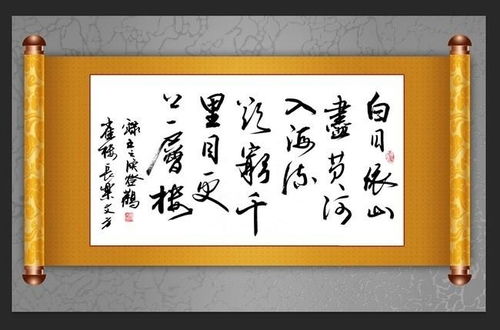 白日依山
盡黄河
入海流
欲窮千
里目更
上一層樓
錄王之渙登鸛
雀樓長樂文方